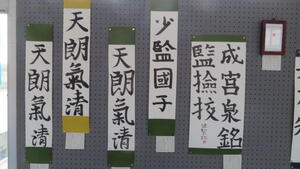 成宮泉銘
監撿挍
少監國子
天朗氣清
天朗氣清
天朗氣清